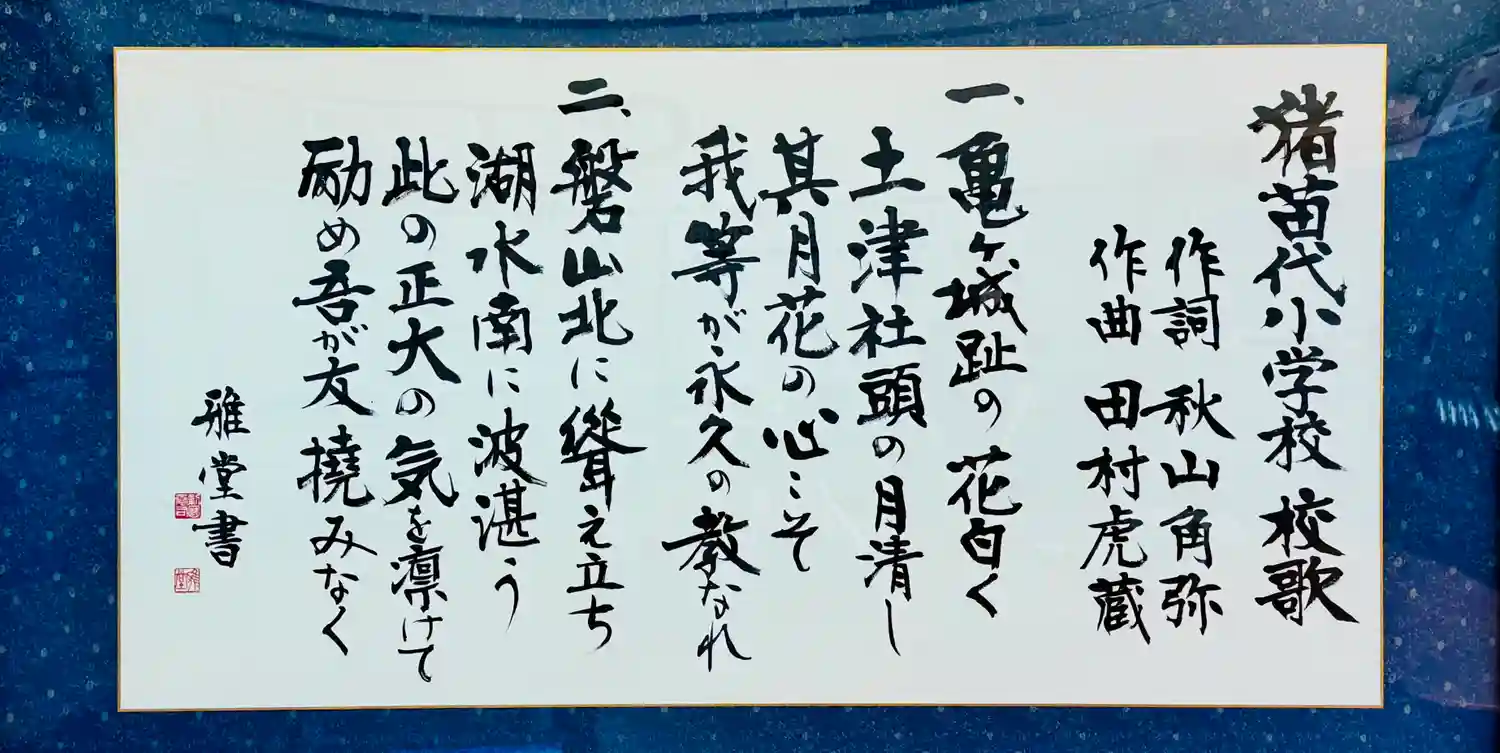 猪苗代小学校 校歌
作詞 秋山角弥
作曲 田村虎蔵
一、亀ヶ城趾の花白く
土津社頭の月清し
其月花の心こそ
我等が永久の教なれ
二、磐山北に聳え立ち
湖水南に波湛う
此の正大の気を凛けて
励め吾が友撓みなく
雅堂書